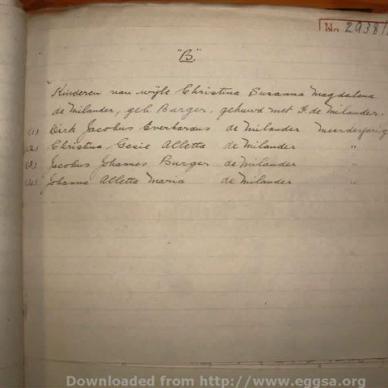 No 2938/
"B."
Kinderen van wijle Christina Susanna Magdalena
de Milander, geb Burger, gehuwd met F. de Milander.
(1) Dirk Jacobus Everhardus de Milander meerderjarig
(2) Christina Gesie Alletta de Milander "
(3) Jacobus Johannes Burger de Milander "
(4) Johanna Alletta Maria de Milander "
Downloaded from http://www.eggsa.org